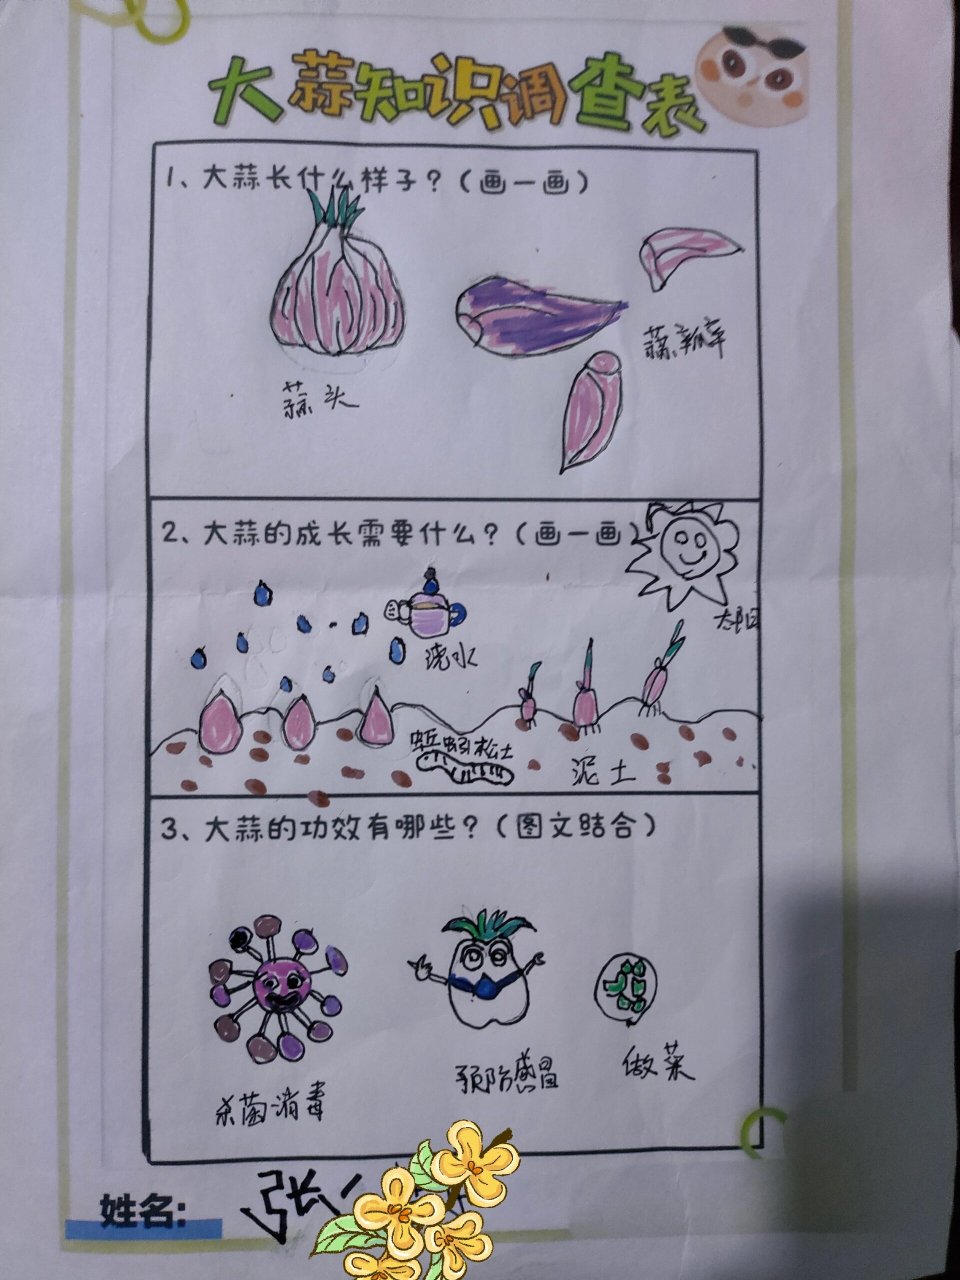 大蒜知识调查表
1、大蒜长什么样子？（画一画）
蒜头
蒜瓣
2、大蒜的成长需要什么？（画一画）
太阳
浇水
蚯蚓松土
泥土
3、大蒜的功效有哪些？（图文结合）
杀菌消毒
预防感冒
做菜
姓名：张